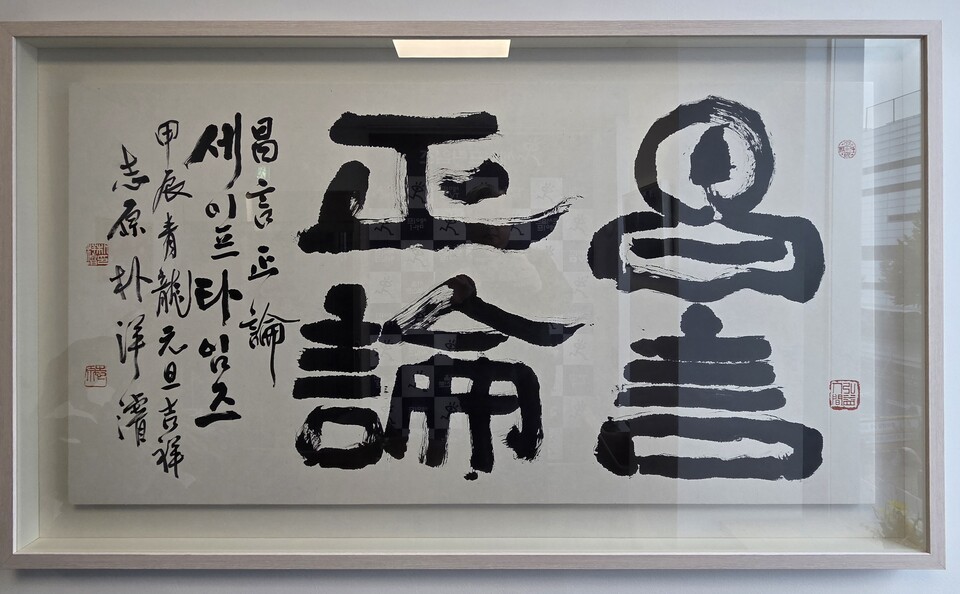 昌言
弘益人間
正論
昌言正論
세이프타임즈
甲辰青龍元旦吉祥
志原朴洋